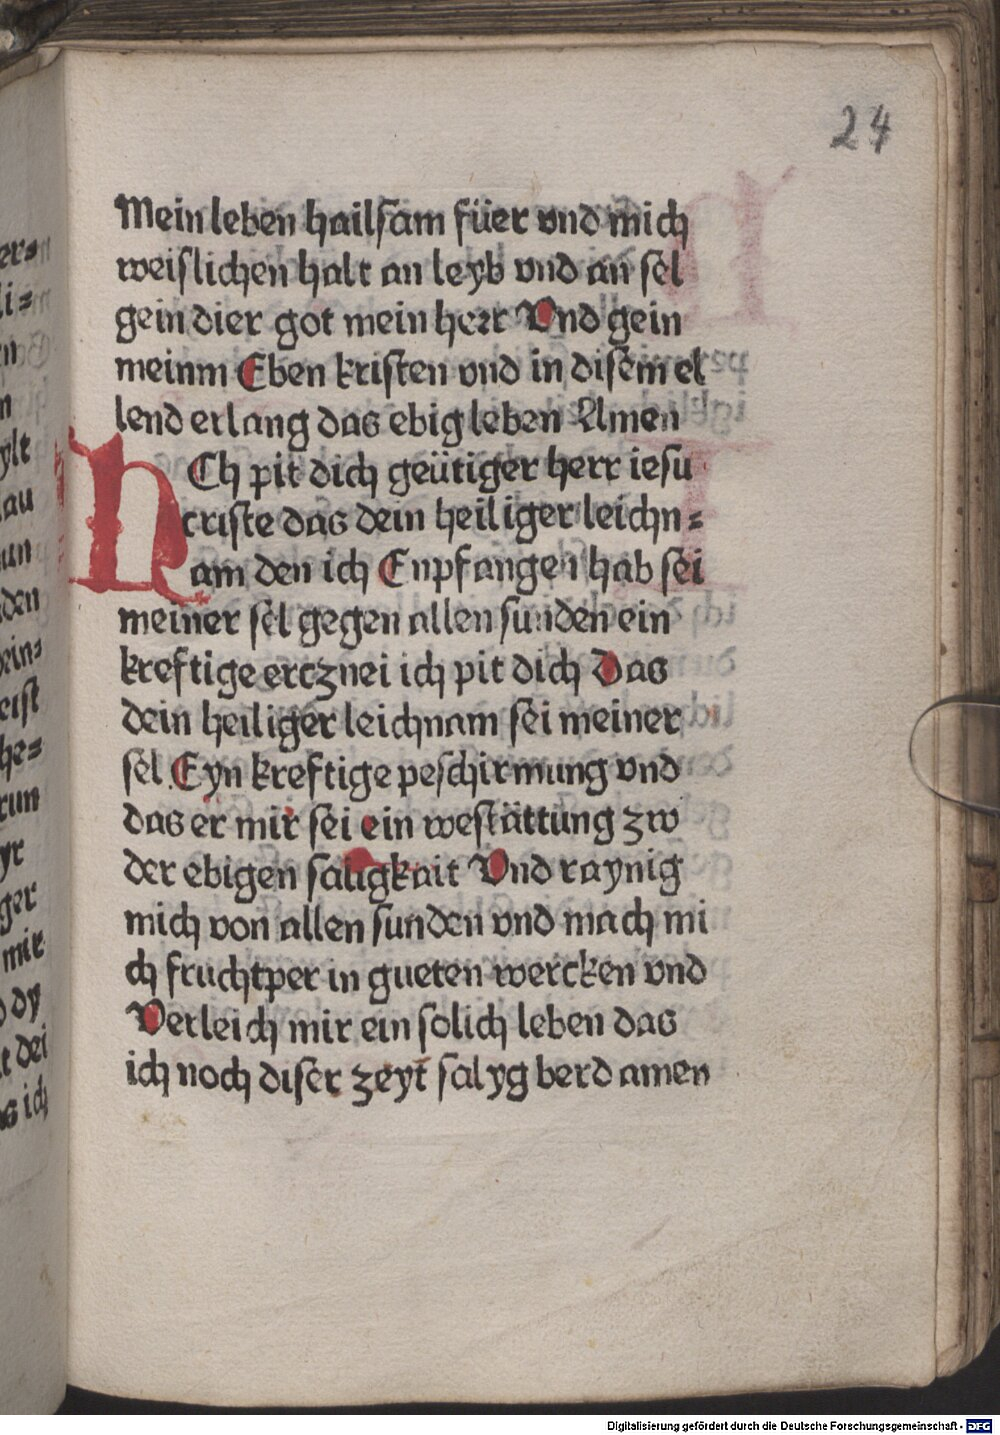 24
Mein leben hailsam füer vnd mich
weislichen halt an leyb vnd an sel
gein dier got mein herr Vnd gein
meinm Eben kristen vnd in disem el
lend erlang das ebig leben Amen
ICh pit dich geütiger herr iesu
criste das dein heiliger leichn=
am den ich Enpfangen hab sei
meiner sel gegen allen sunden ein
kreftige ertznei ich pit dich Das
dein heiliger leichnam sei meiner
sel Eyn kreftige peschirmung vnd
das er mir sei ein westättung zw
der ebigen saligkait Vnd raynig
mich von allen sunden vnd mach mi
ch fruchtper in gueten wercken vnd
Verleich mir ein solich leben das
ich noch diser zeyt salyg berd amen
Digitalisierung gefördert durch die Deutsche Forschungsgemeinschaft - DFG